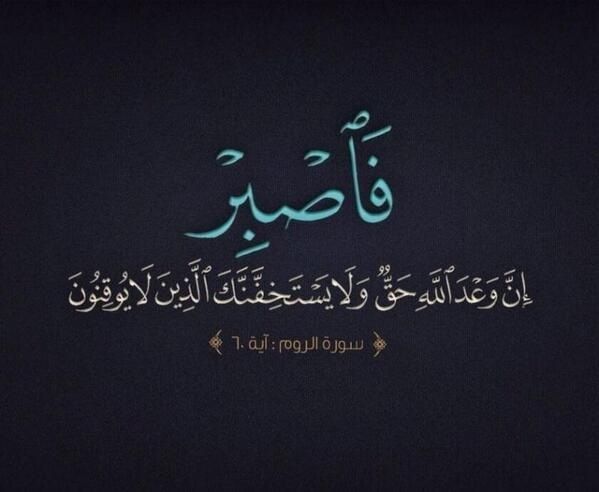 فَٱصْبِرْ
إِنَّ وَعْدَ ٱللَّهِ حَقٌّ وَلَا يَسْتَخِفَّنَّكَ ٱلَّذِينَ لَا يُوقِنُونَ
﴿ سورة الروم : آية ٦٠ ﴾